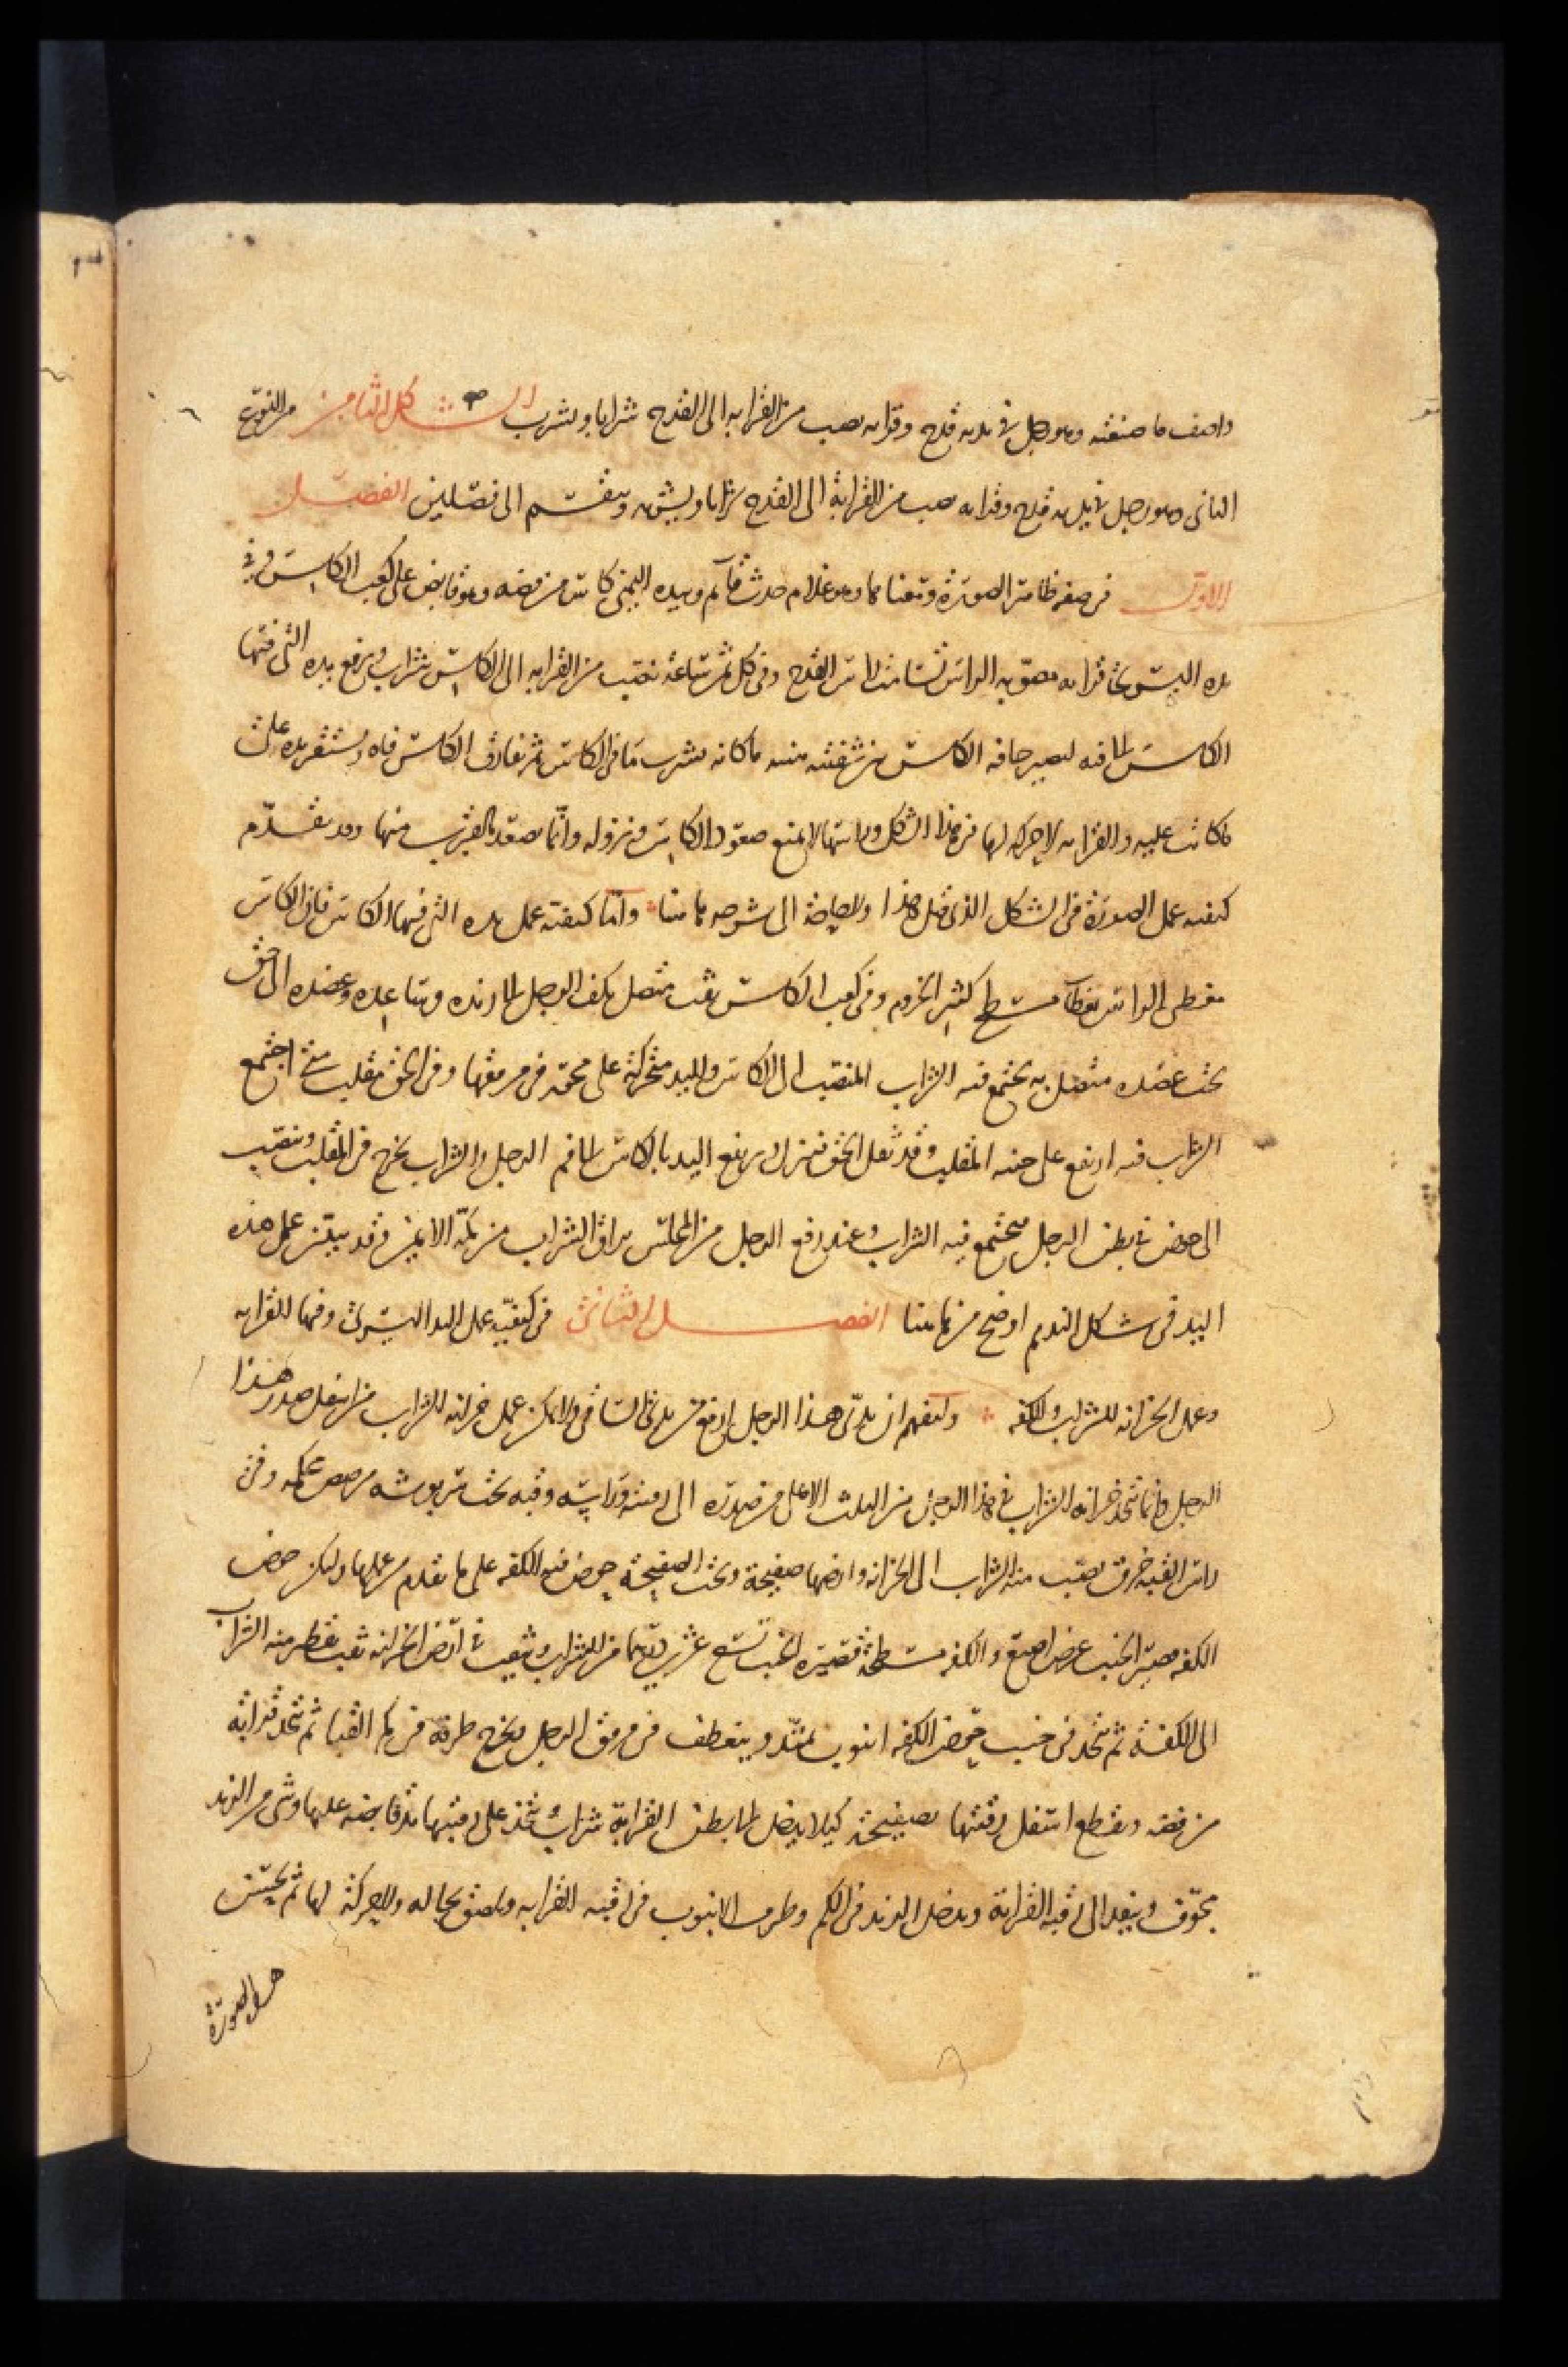 واصف ما صنعته وهو رجل في يديه قدح وقرابه يصب من القرابه الى القدح شرابا ويشرب الشكل الثامن من النوع
الثانى وهو رجل في يديه قدح وقرابه يصب من القرابة الى القدح شرابا ويشربه وينقسم الى فصلين الفصل
الاول فى صفه ظاهر الصورة ومعناها وهو غلام حدث قائم وبيده اليمنى كاس من فضه وهو قابض على كعب الكاس وفي
يده اليسرى قرابه مصوبه الراس تسامت راس القدح وفى كل ثمن ساعة تصب من القرابه الى الكاس شراب ويرفع يده التى فيها
الكاس الى فيه لتصير حافه الكاس من شفته منه ما كانه يشرب ما فى الكاس ثم تفارق الكاس فاه وتستقر يده على
ما كانت عليه والقرابه لا حركه لها فى هذا الشكل وراسها لا يمنع صعود الكاس ونزوله وانما يصعد بالقرب منها وقد تقدم
كيفيه عمل الصورة فى الشكل الذى قبل هذا ولا حاجة الى شرحه هاهنا واما كيفية عمل يده التى فيها الكاس فان الكاس
مغطى الراس بغطاء مسطح كثير الخروم وفى كعب الكاس ثقب متصل بكف الرجل الى زنده وساعده وعضده الى حق
تحت عضده متصل به يجتمع فيه الشراب المنصب الى الكاس واليد متحركة على محور فى مرفقها وفى الحق مقلب متى اجتمع
الشراب فيه ارتفع على جنبه المقلب وقد ثقل الحق فنزل ويرفع اليد بالكاس الى فم الرجل والشراب يخرج من المقلب وينصب
الى حوض في بطن الرجل يجتمع فيه الشراب وعند رفع الرجل من المجلس يراق الشراب من كمه الايمن وقد يبين عمل هذه
اليد فى شكل النديم اوضح من هاهنا الفصل الثانى فى كيفية عمل اليد اليسرى وفيها القرابه
وعمل الخزانه للشراب والكفه وليفهم ان يدى هذا الرجل ارفع من يدى الساقى ولا يمكن عمل خزانه للشراب من اسفل صدر هذا
الرجل وانما تتخذ خزانه الشراب في هذا الرجل من الثلث الاعلى من صدره الى رقبته وراسه وقبه تحت شربوشه محكمه وفى
راس القبه خرق يصب منه الشراب الى الخزانه وارضها صفيحة وتحت الصفيحة حوض فيه الكفه على ما تقدم من عملها وليكن حوض
الكفه قصير الجنب عرض اصبع والكفه مسطحة قصيرة الجنب تسع عشرين درهما من الشراب ويثقب في ارض الخزانه ثقب يقطر منه الشراب
الى الكفة ثم يتخذ فى جنب حوض الكفه انبوب يمتد وينعطف فى مرفق الرجل ويخرج طرفه من كم القبا ثم يتخذ قرابه
من فضه ويقطع اسفل رقبتها بصفيحة كيلا يدخل الى بطن القرابة شراب ويتخذ على رقبتها يد قابضه عليها وشى من الزند
مجوف وينفذ الى رقبه القرابة ويدخل الزند فى الكم وطرف الانبوب فى رقبه القرابه ويلصق بحاله ولا حركة لها ثم يحسن
هذه الصورة